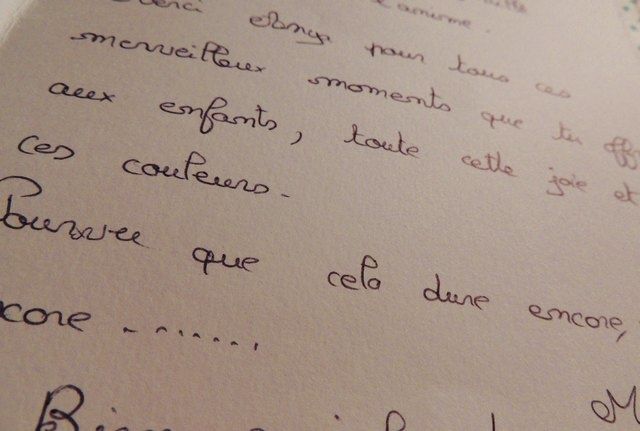 pour tous ces
merveilleux moments que tu
aux enfants, toute cette joie et
ces couleurs.
Pourvu que cela dure encore,
core ........